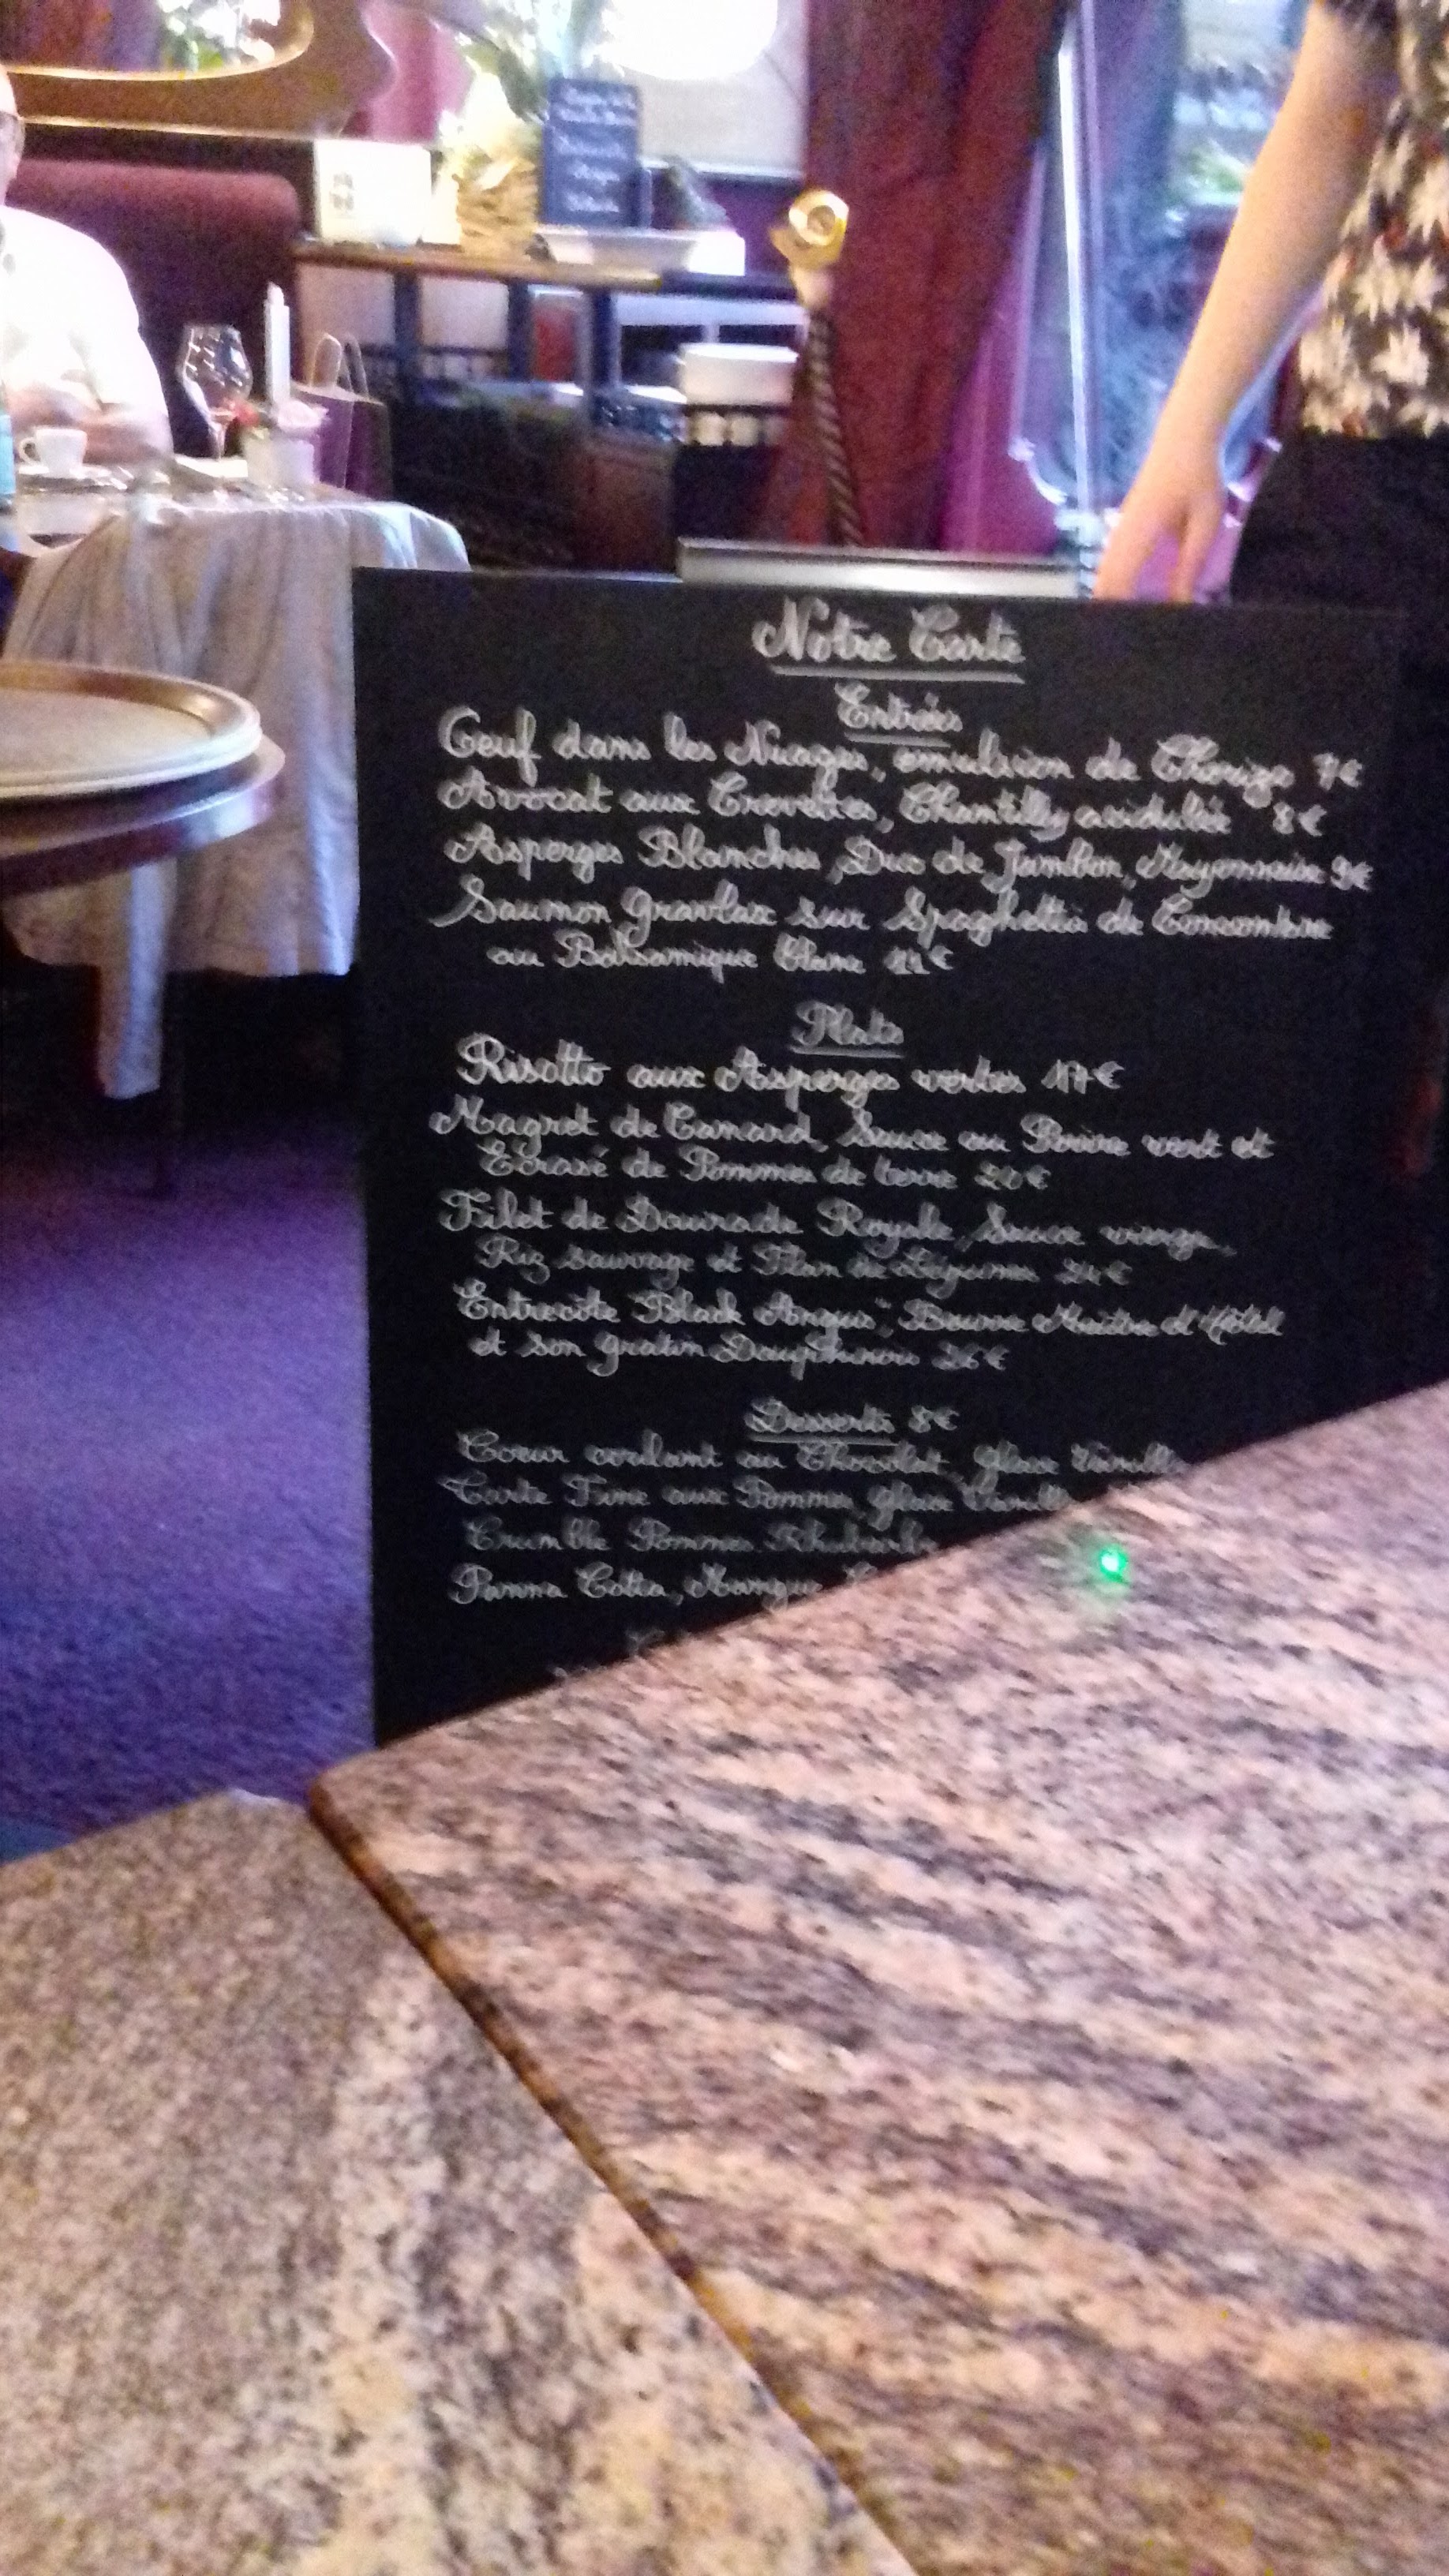 Notre Carte
Entrées
Oeuf dans les Nuages, emulsion de Chorizo 7€
Avocat aux Crevettes, Chantilly acidulée 8€
Asperges Blanches, Duo de Jambon, Mayonnaise 9€
Saumon gravlax sur Spaghettis de Concombre
au Balsamique Blanc 11€
Plats
Risotto aux Asperges vertes 17€
Magret de Canard, Sauce au Poivre vert et
Ecrasé de Pommes de terre 20€
Filet de Daurade Royale, Sauce vierge,
Riz sauvage et Flan de Légumes 24€
Entrecôte "Black Angus", Beurre Maître d'Hôtel
et son gratin Dauphinois 26€
Desserts 8€
Coeur coulant au Chocolat, glace Vanille
Tarte Fine aux Pommes, glace Vanille
Crumble Pommes Rhubarbe
Panna Cotta, Mangue